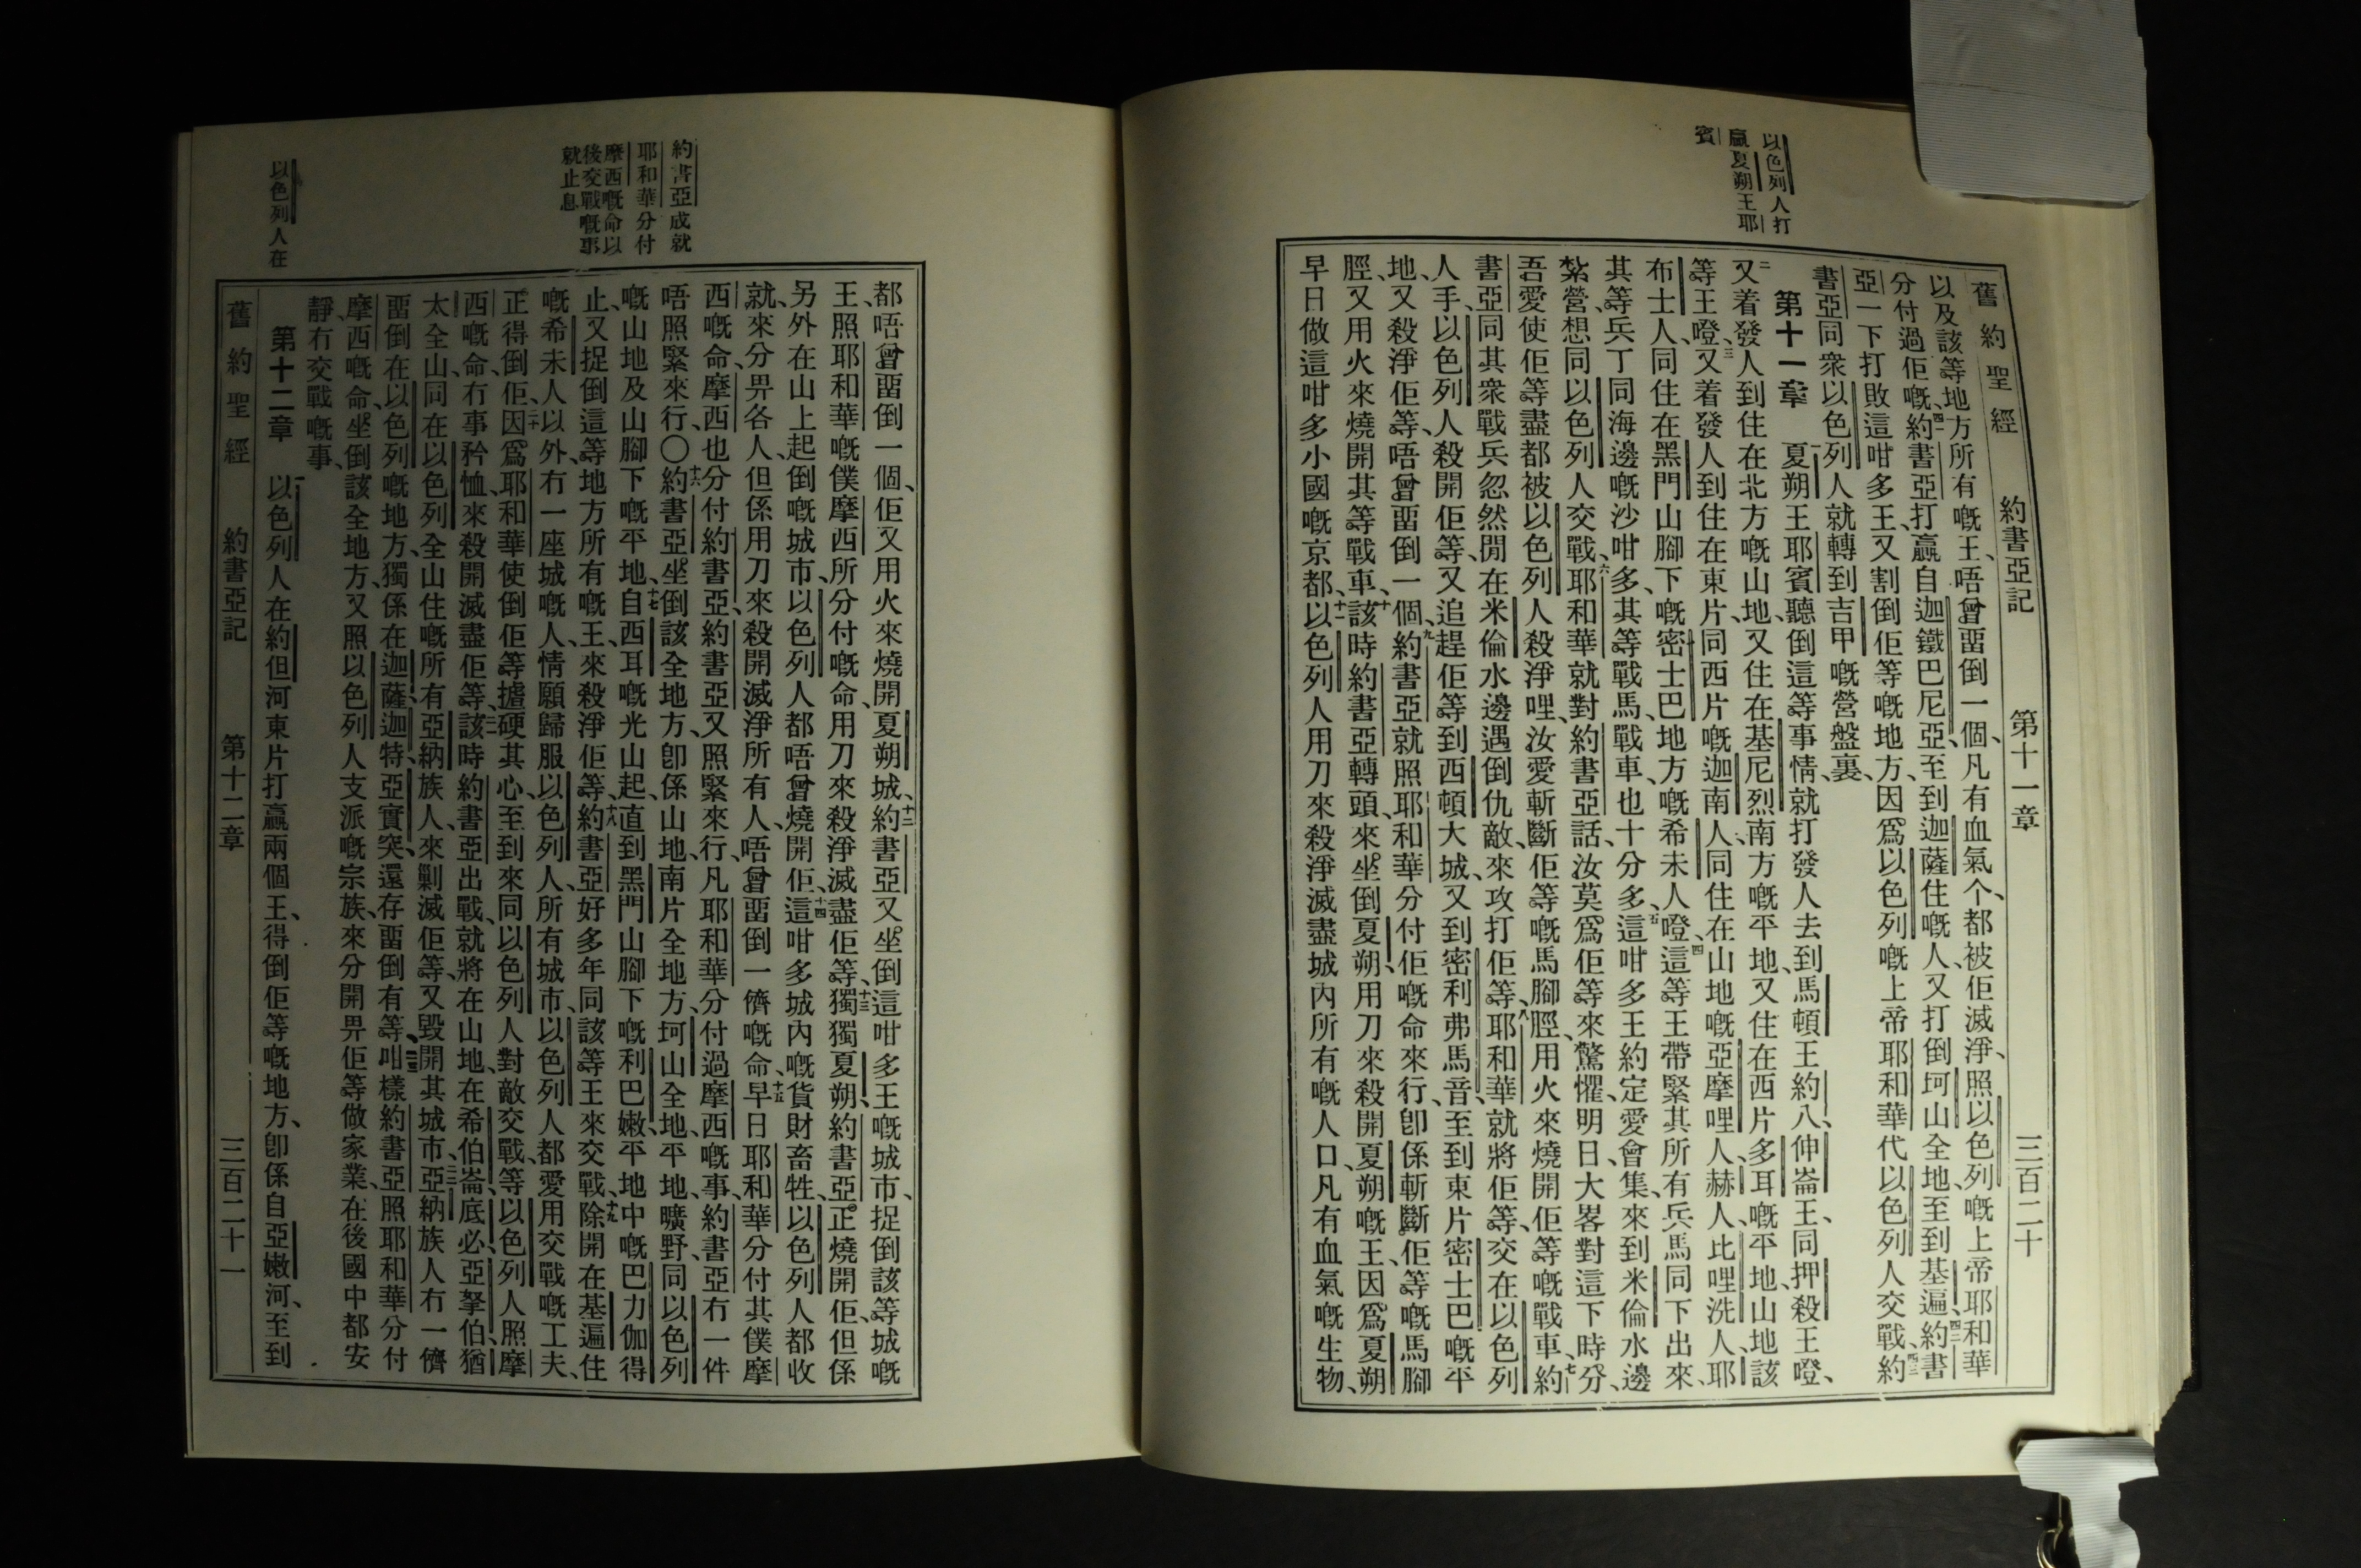 以色列人打
贏夏朔王耶
賓
舊約聖經 約書亞記 第十一章 三百二十
以及該等地方所有嘅王、唔曾畱倒一個、凡有血氣个、都被佢滅淨、照以色列嘅上帝耶和華
分付過佢嘅、四一約書亞打贏自迦鐵巴尼亞、至到迦薩住嘅人、又打倒坷山全地、至到基遍、四二約書
亞一下打敗這咁多王、又割倒佢等嘅地方、因爲以色列嘅上帝耶和華代以色列人交戰、四三約
書亞同衆以色列人就轉到吉甲嘅營盤裏、
第十一章 一夏朔王耶賓聽倒這等事情、就打發人去到馬頓王約八、伸崙王、同押殺王噔、
二又着發人到住在北方嘅山地、又住在基尼烈南方嘅平地、又住在西片多耳嘅平地、山地該
等王噔、三又着發人到住在東片同西片嘅迦南人、同住在山地嘅亞摩哩人、赫人、比哩洗人、耶
布士人、同住在黑門山腳下嘅密士巴地方嘅希未人噔、四這等王帶緊其所有兵馬同下出來、
其等兵丁同海邊嘅沙咁多、其等戰馬、戰車、也十分多、五這咁多王約定愛會集、來到米倫水邊
紮營、想同以色列人交戰、六耶和華就對約書亞話、汝莫爲佢等來驚懼、明日大畧對這下時分、
吾愛使佢等盡都被以色列人殺淨哩、汝愛斬斷佢等嘅馬腳脛、用火來燒開佢等嘅戰車、七約
書亞同其衆戰兵忽然閒在米倫水邊遇倒仇敵、來攻打佢等、八耶和華就將佢等、交在以色列
人手、以色列人殺開佢等、又追趕佢等到西頓大城、又到密利弗馬音、至到東片密士巴嘅平
地、又殺淨佢等、唔曾畱倒一個、九約書亞就照耶和華分付佢嘅命來行、卽係斬斷佢等嘅馬腳
脛、又用火來燒開其等戰車、十該時約書亞轉頭、來坐倒夏朔、用刀來殺開夏朔嘅王、因爲夏朔
早日做這咁多小國嘅京都、十一以色列人用刀來殺淨滅盡城內所有嘅人口、凡有血氣嘅生物、
約書亞成就
耶和華分付
摩西嘅命以
後交戰嘅事
就止息
以色列人在
都唔曾畱倒一個、佢又用火來燒開夏朔城、十二約書亞又坐倒這咁多王嘅城市、捉倒該等城嘅
王、照耶和華嘅僕摩西所分付嘅命、用刀來殺淨滅盡佢等、十三獨獨夏朔、約書亞正燒開佢、但係
另外在山上起倒嘅城市、以色列人都唔曾燒開佢、十四這咁多城內嘅貨財畜牲、以色列人都收
就、來分畀各人、但係用刀來殺開滅淨所有人、唔曾畱倒一儕嘅命、十五早日耶和華分付其僕摩
西嘅命、摩西也分付約書亞、約書亞又照緊來行、凡耶和華分付過摩西嘅事、約書亞冇一件
唔照緊來行、〇十六約書亞坐倒該全地方、卽係山地、南片全地方、坷山全地、平地、曠野、同以色列
嘅山地及山腳下嘅平地、十七自西耳嘅光山起、直到黑門山腳下嘅利巴嫩平地中嘅巴力伽得
止、又捉倒這等地方所有嘅王、來殺淨佢等、十八約書亞好多年同該等王來交戰、十九除開在基遍住
嘅希未人以外、冇一座城嘅人、情願歸服以色列人、所有城市、以色列人都愛用交戰嘅工夫、
正得倒佢、二十因爲耶和華使倒佢等攄硬其心、至到來同以色列人對敵交戰、等以色列人照摩
西嘅命、冇事矜恤、來殺開滅盡佢等、二一該時約書亞出戰、就將在山地、在希伯崙、底必、亞拏伯、猶
太全山、同在以色列全山住嘅所有亞納族人、來剿滅佢等、又毀開其城市、二二亞納族人冇一儕
畱倒在以色列嘅地方、獨係在迦薩、迦特、亞實突、還存畱倒有等、二三咁樣約書亞照耶和華分付
摩西嘅命、坐倒該全地方、又照以色列人支派嘅宗族、來分開畀佢等做家業、在後國中都安
靜冇交戰嘅事、
第十二章 一以色列人在約但河東片打贏兩個王、得倒佢等嘅地方、卽係自亞嫩河、至到
舊約聖經 約書亞記 第十二章 三百二十一